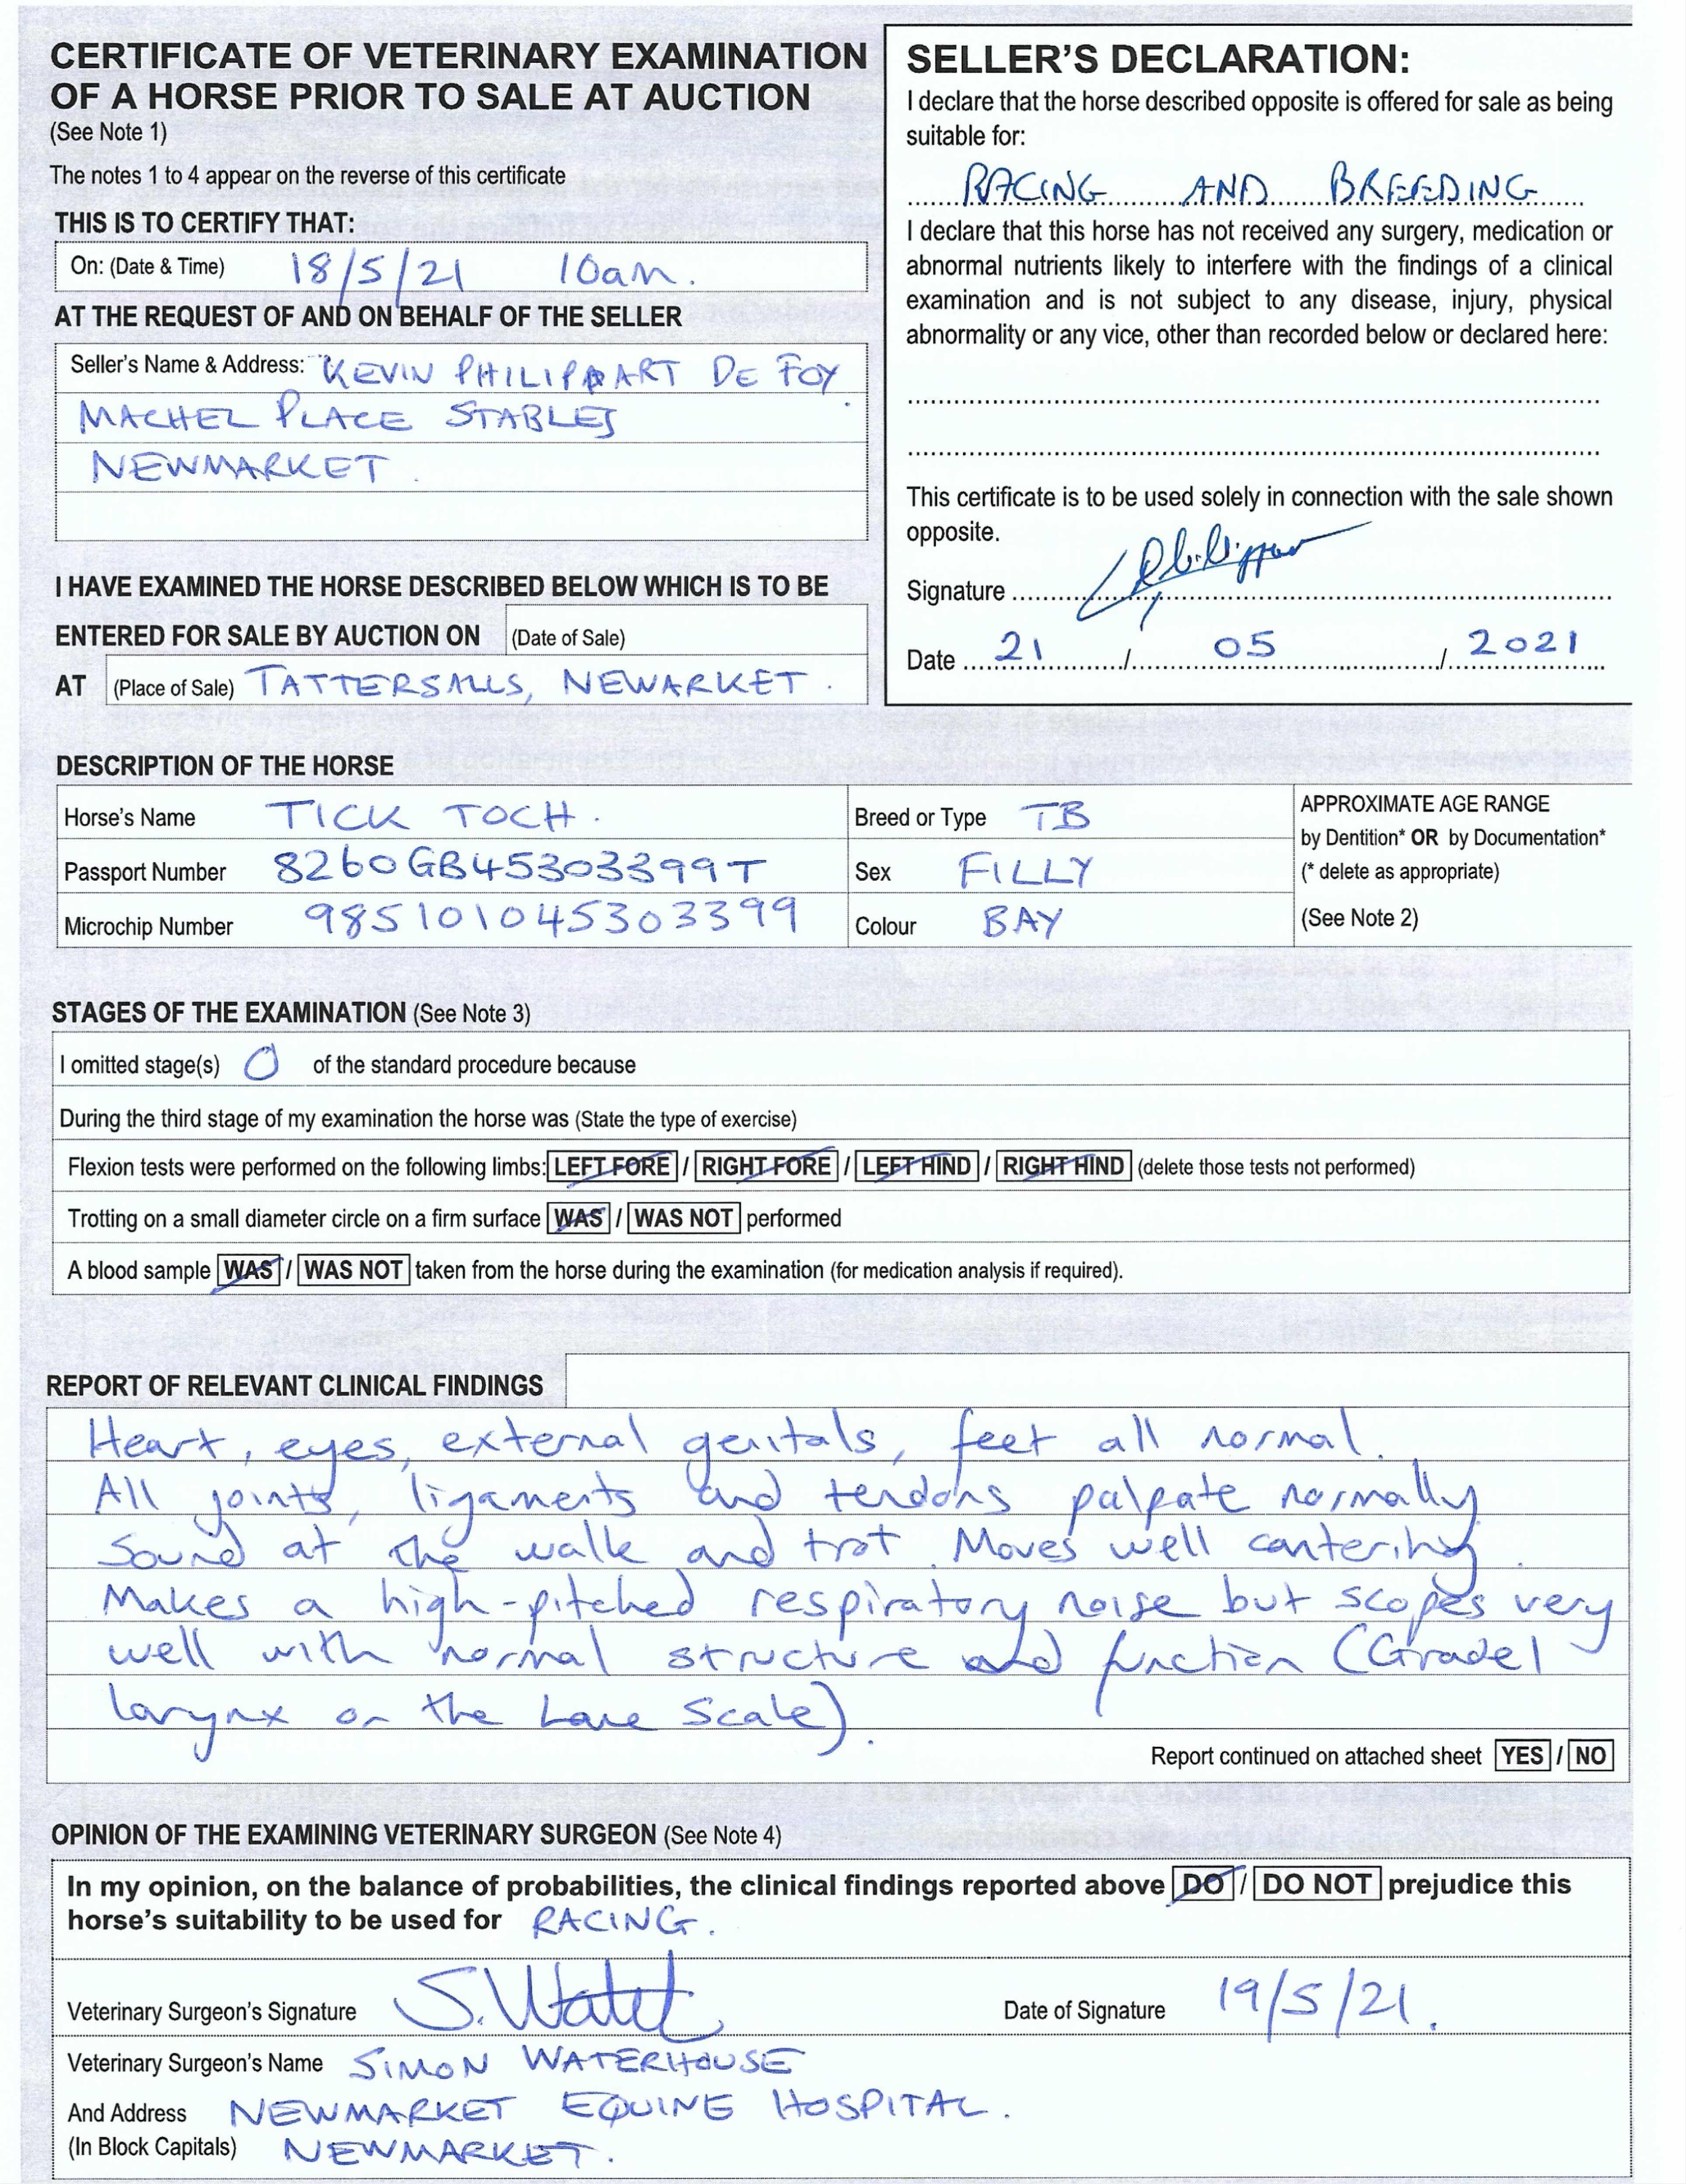 CERTIFICATE OF VETERINARY EXAMINATION
OF A HORSE PRIOR TO SALE AT AUCTION
(See Note 1)
The notes 1 to 4 appear on the reverse of this certificate
THIS IS TO CERTIFY THAT:
On: (Date & Time) 18/5/21 10am.
AT THE REQUEST OF AND ON BEHALF OF THE SELLER
Seller's Name & Address: KEVIN PHILIPPART DE FOY
MACHEL PLACE STABLES
NEWMARKET
I HAVE EXAMINED THE HORSE DESCRIBED BELOW WHICH IS TO BE
ENTERED FOR SALE BY AUCTION ON (Date of Sale)
AT (Place of Sale) TATTERSALLS, NEWARKET.
SELLER'S DECLARATION:
I declare that the horse described opposite is offered for sale as being
suitable for:
RACING AND BREEDING
I declare that this horse has not received any surgery, medication or
abnormal nutrients likely to interfere with the findings of a clinical
examination and is not subject to any disease, injury, physical
abnormality or any vice, other than recorded below or declared here:
This certificate is to be used solely in connection with the sale shown
opposite.
Signature
Date 21 / 05 / 2021
DESCRIPTION OF THE HORSE
Horse's Name TICK TOCH. Breed or Type TB
Passport Number 8260GB45303399T Sex FILLY
Microchip Number 985101045303399 Colour BAY
APPROXIMATE AGE RANGE
by Dentition* OR by Documentation*
(* delete as appropriate)
(See Note 2)
STAGES OF THE EXAMINATION (See Note 3)
I omitted stage(s) 0 of the standard procedure because
During the third stage of my examination the horse was (State the type of exercise)
Flexion tests were performed on the following limbs: LEFT FORE / RIGHT FORE / LEFT HIND / RIGHT HIND (delete those tests not performed)
Trotting on a small diameter circle on a firm surface WAS / WAS NOT performed
A blood sample WAS / WAS NOT taken from the horse during the examination (for medication analysis if required).
REPORT OF RELEVANT CLINICAL FINDINGS
Heart, eyes, external genitals, feet all normal.
All joints, ligaments and tendons palpate normally
Sound at the walk and trot. Moves well cantering.
Makes a high-pitched respiratory noise but scopes very
well with normal structure and function (Grade 1
larynx on the Lane Scale).
Report continued on attached sheet YES / NO
OPINION OF THE EXAMINING VETERINARY SURGEON (See Note 4)
In my opinion, on the balance of probabilities, the clinical findings reported above DO / DO NOT prejudice this
horse's suitability to be used for RACING.
Veterinary Surgeon's Signature Date of Signature 19/5/21.
Veterinary Surgeon's Name SIMON WATERHOUSE
And Address NEWMARKET EQUINE HOSPITAL.
(In Block Capitals) NEWMARKET.